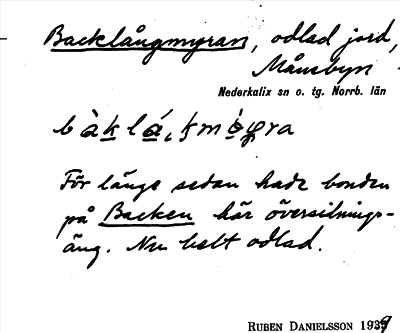 Backlångmyran, odlad jord,
Månsbyn
Nederkalix sn o. tg. Norrb. län
För länge sedan hade bonden
på Backen här översilnings-
äng. Nu helt odlad.
RUBEN DANIELSSON 1939